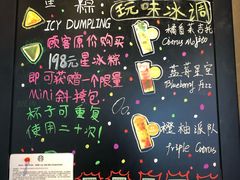 粽
ICY DUMPLING
顾客原价购买
198元星冰粽
即可获赠一个限量
Mini斜挎包
杯子可重复
使用二十次!
玩味冰调
Citrus Mojito
蓝莓星空
Blueberry fizz
橙柚派队
Triple Citrus